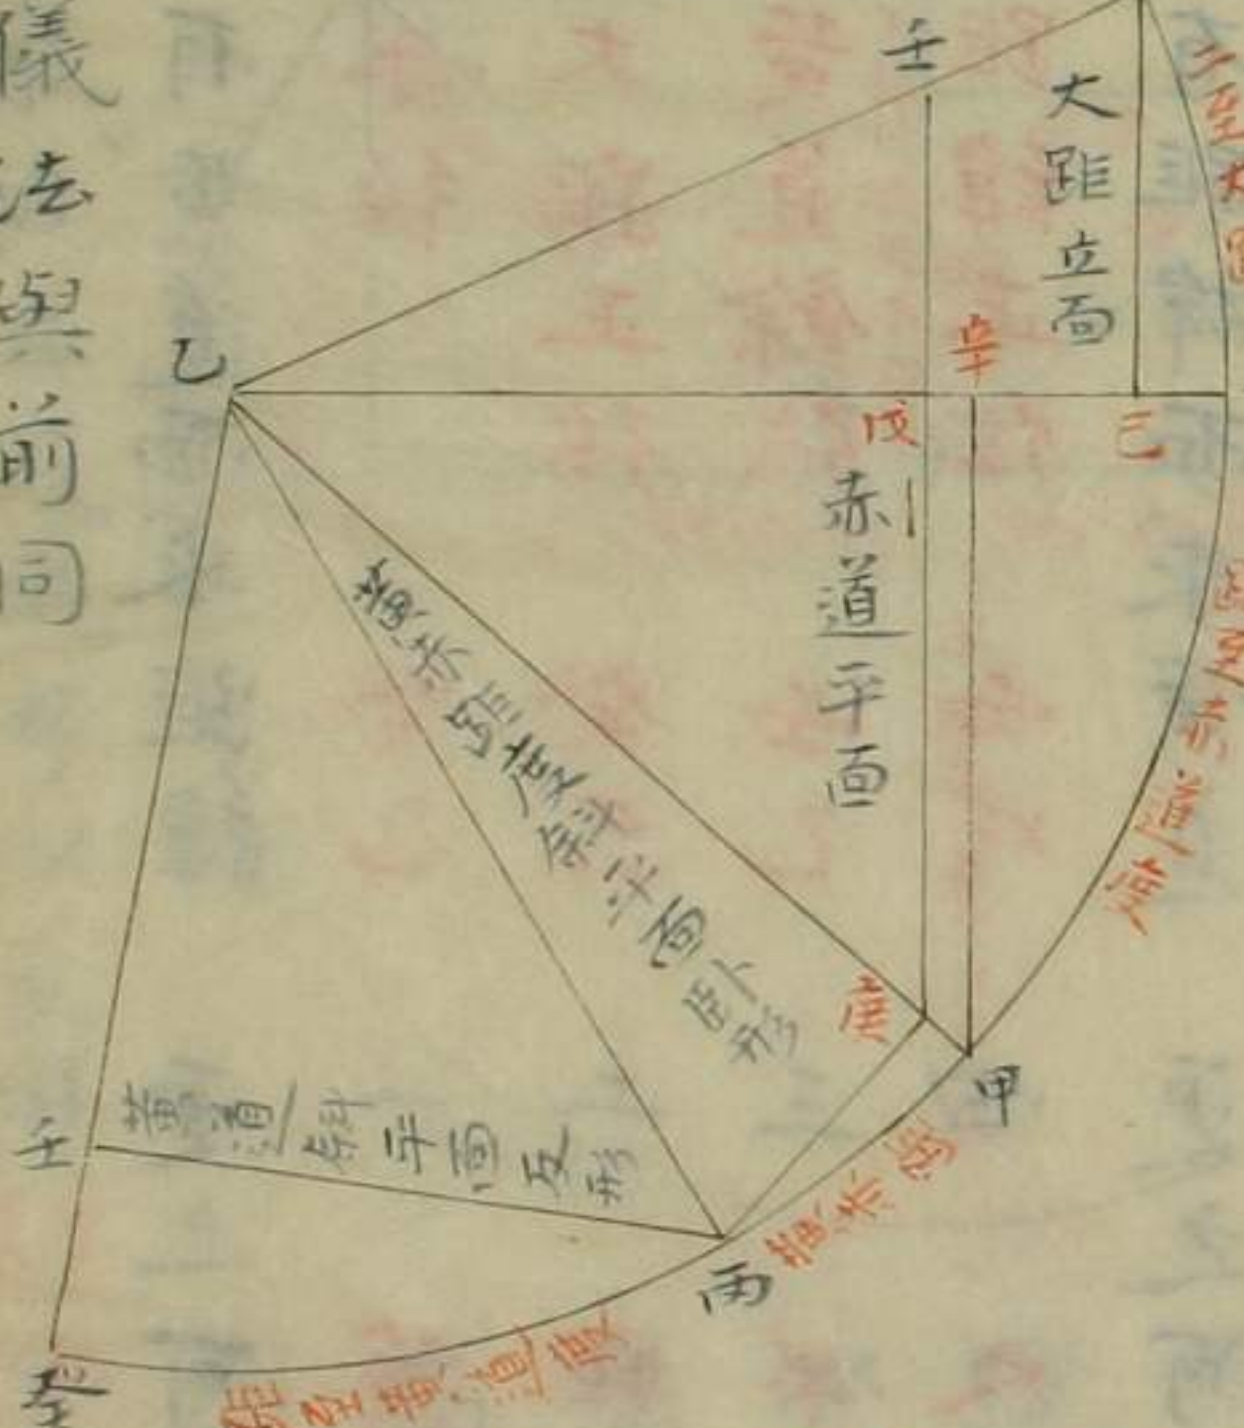 儀法與前同
壬
大距立面
二至
乙
辛
戊
己
赤道平面
距至赤道度
黄赤距度斜平面卧形
庚
甲
黄赤距
丙
壬
黄道斜平面反形
癸
距至黄道度